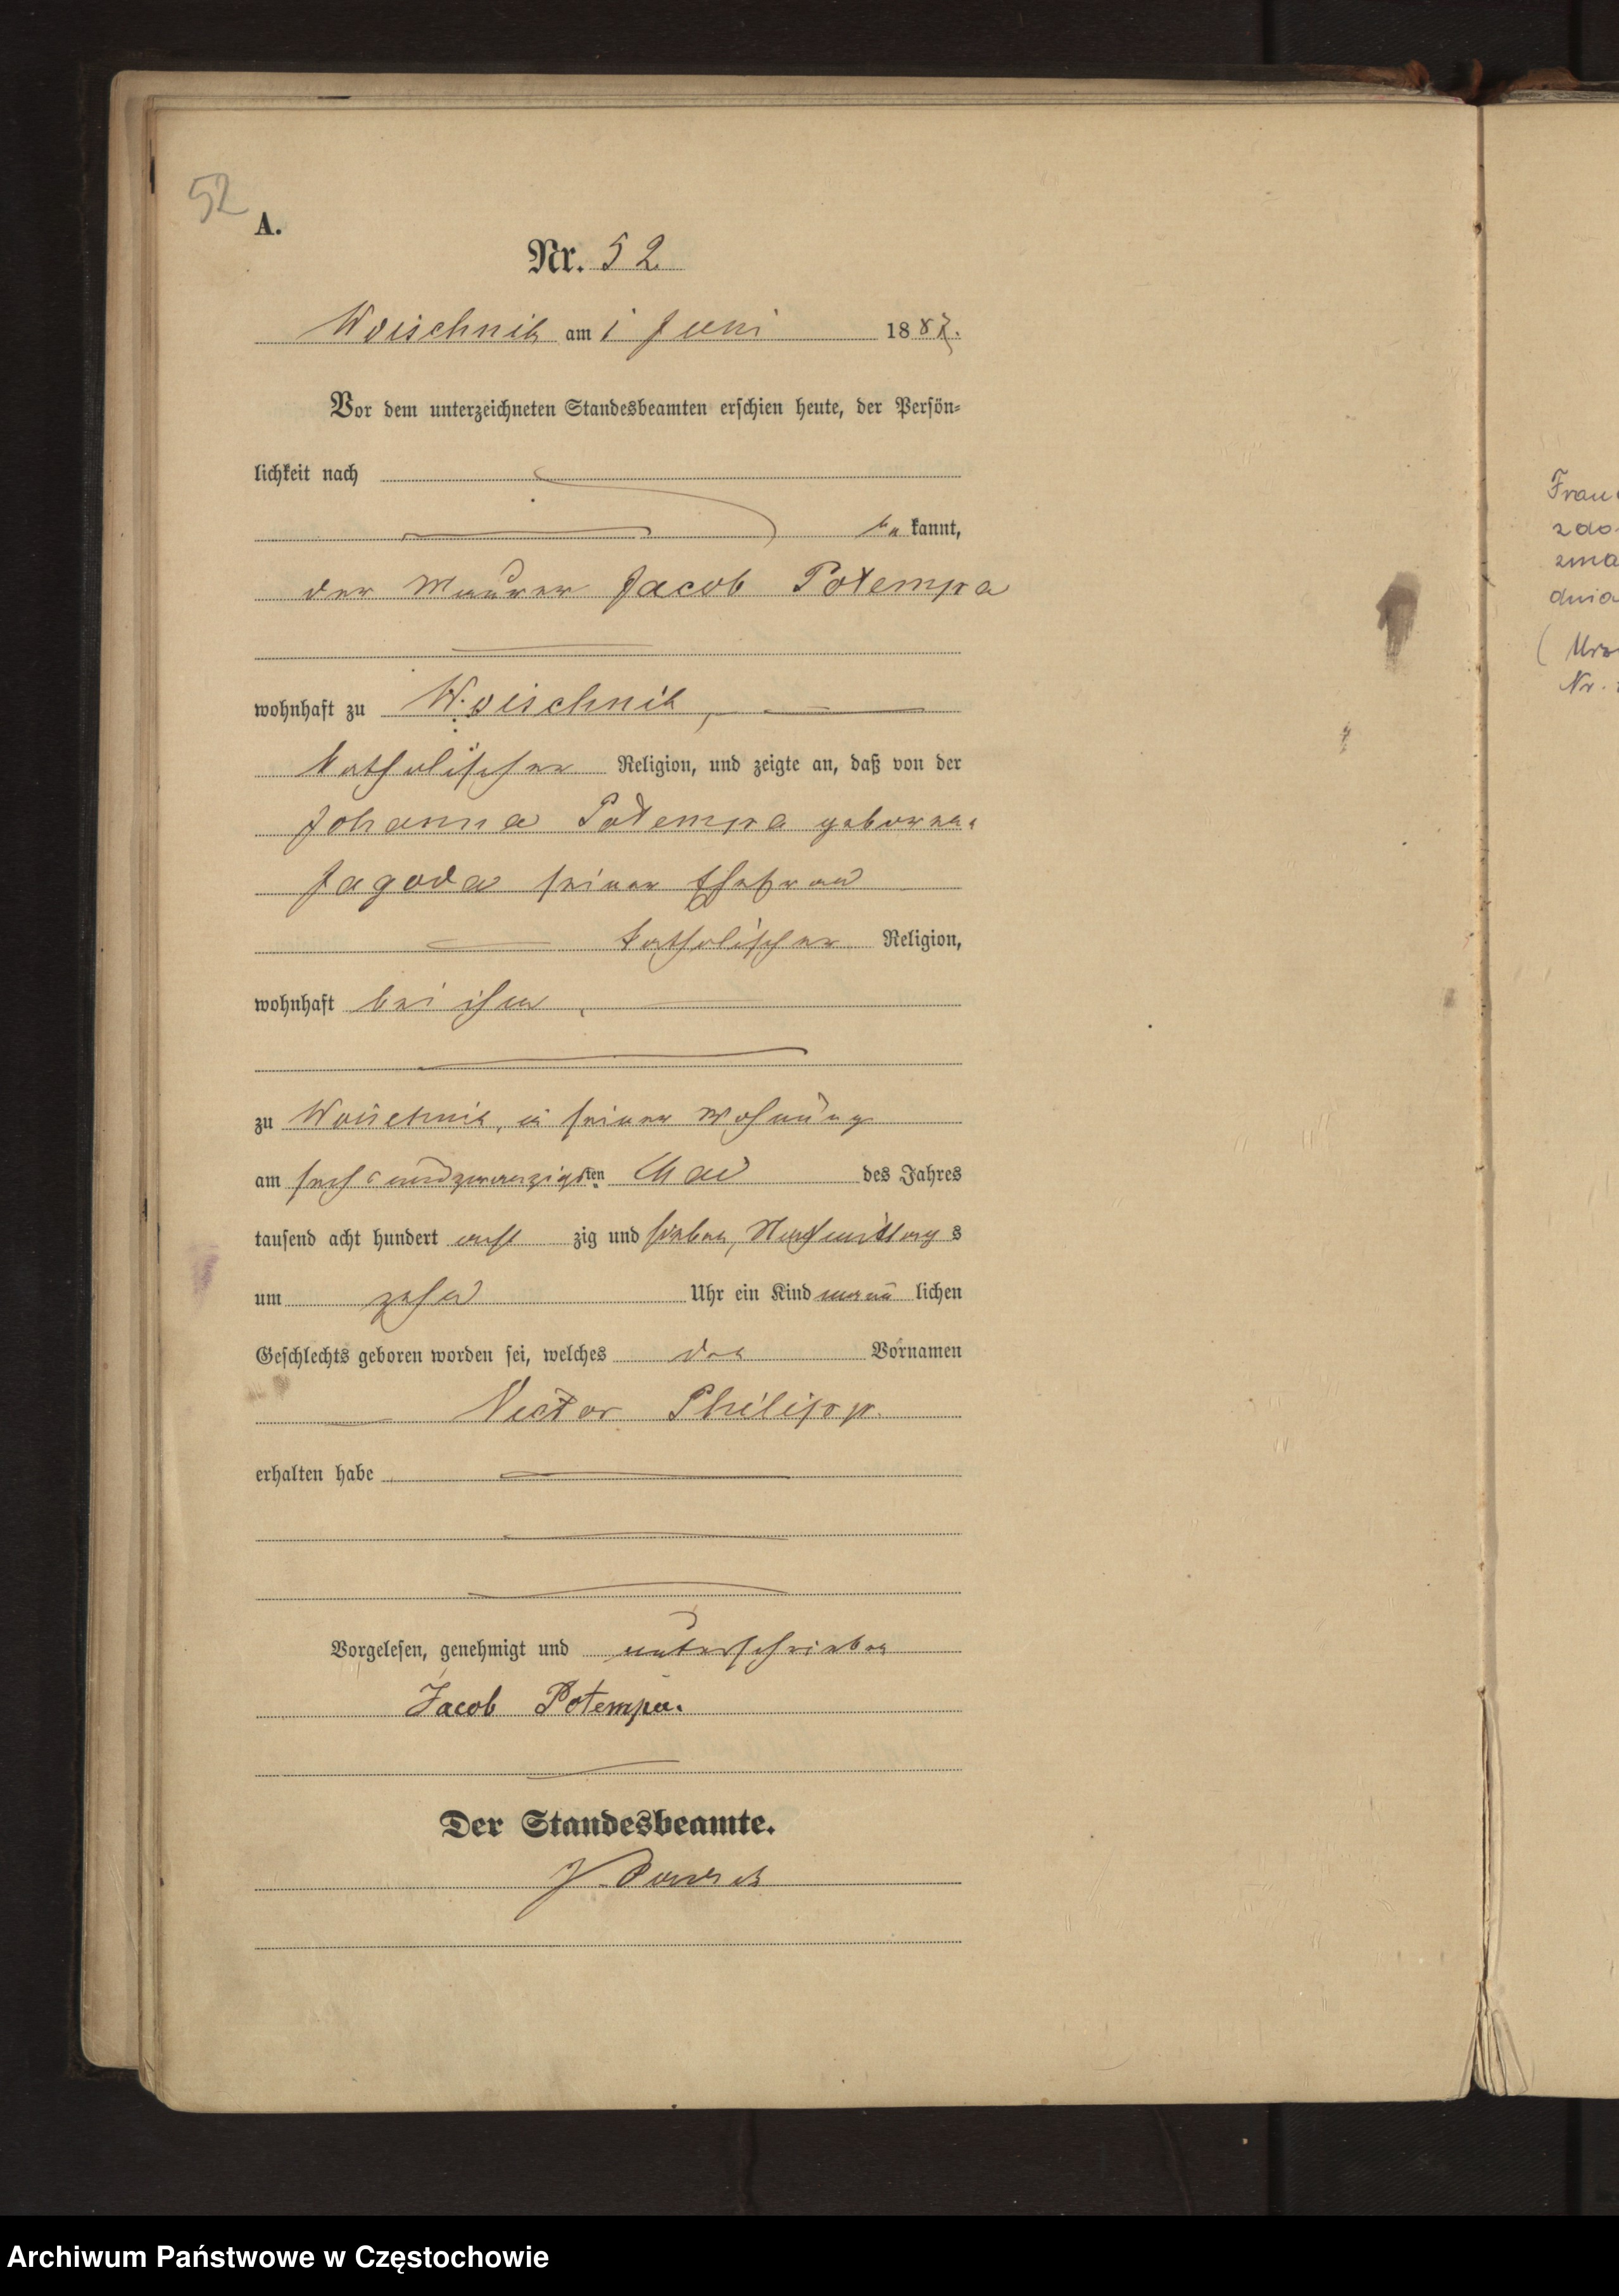 52
A.
Nr. 52
Woischnik am 1 Juni 1887.
Vor dem unterzeichneten Standesbeamten erschien heute, der Persön-
lichkeit nach
be kannt,
der Maurer Jacob Potempa
wohnhaft zu Woischnik,
katholischer Religion, und zeigte an, daß von der
Johanna Potempa geborene
Jagoda seiner Ehefrau
katholischer Religion,
wohnhaft bei ihm,
zu Woischnik, in seiner Wohnung
am sechsundzwanzigsten Mai des Jahres
tausend acht hundert acht zig und sieben, Nachmittags
um zehn Uhr ein Kind männ lichen
Geschlechts geboren worden sei, welches den Vornamen
Victor Philipp.
erhalten habe
Vorgelesen, genehmigt und unterschrieben
Jacob Potempa.
Der Standesbeamte.
Frau
zdo
zma
dnia
(Urz
Nr.
Archiwum Państwowe w Częstochowie